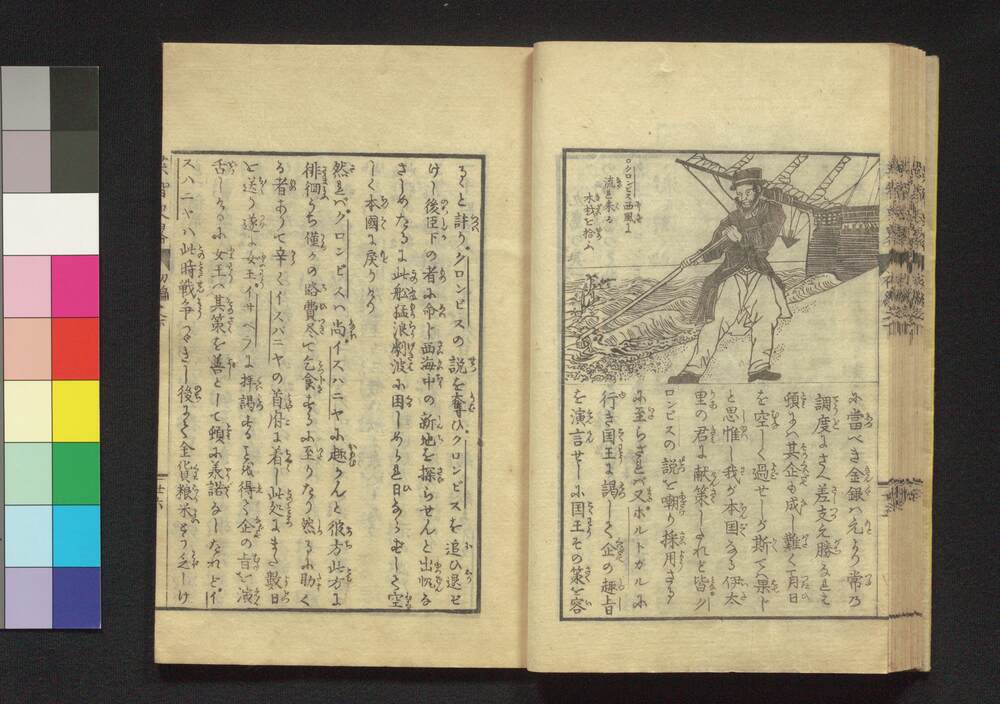 クロンビス西風に
流れ来る
木板を拾ふ
に當べき金銀ハ元より常乃
調度にさへ差支え勝なれバ
頓にハ其企も成し難く丁月日
を空しく過せしが斯てハ果じ
と思惟し我が本国なる伊太
里の君に献策しけれど皆ク
ロンビスの説を嘲り採用ざる
に至らざれバ又ポルトガルに
行き国王に謁しく企の趣旨
を演言せしに国王その策を容
るゝと詐り クロンビスの説を奪ひクロンビスを追ひ退せ
けし後臣下の者に命じ西海中の新地を探らせんと出帆な
さしめたるに此舩猛浪劇波に困しめられ日ならずして空
しく本國に戻りけり
然れバクロンビスハ尚イスハニヤに趣かんと彼方此方に
徘徊うち僅かの路費尽て乞食するに至りたり然るに助く
る者ありて辛くイスパニヤの首府に着し此処にまた数日
を送り遂に女王イサベラに拝謁するを得て企の旨を演
舌しけるに女王ハ其策を善として頓に承諾なしたれどイ
スハニヤハ此時戦争つゞきし後にて金貨粮米とも乏しけ
初編
廿六